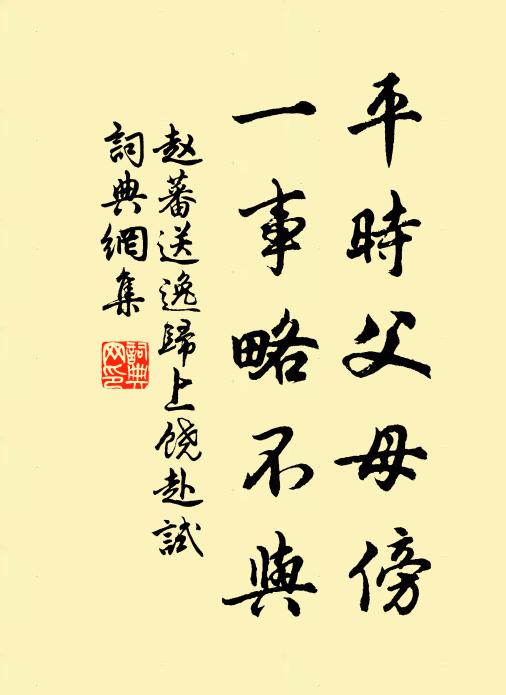 平時父母傍
一事略不與
赵蕃送逸歸上饶赴試
詞典網集
詞典网印